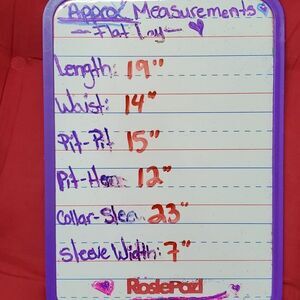 Approx Measurements
-Flat Lay-
Length: 19"
Waist: 14"
Pit-Pit 15"
Pit-Hem: 12"
Collar-Sleev 23"
Sleeve Width: 7"